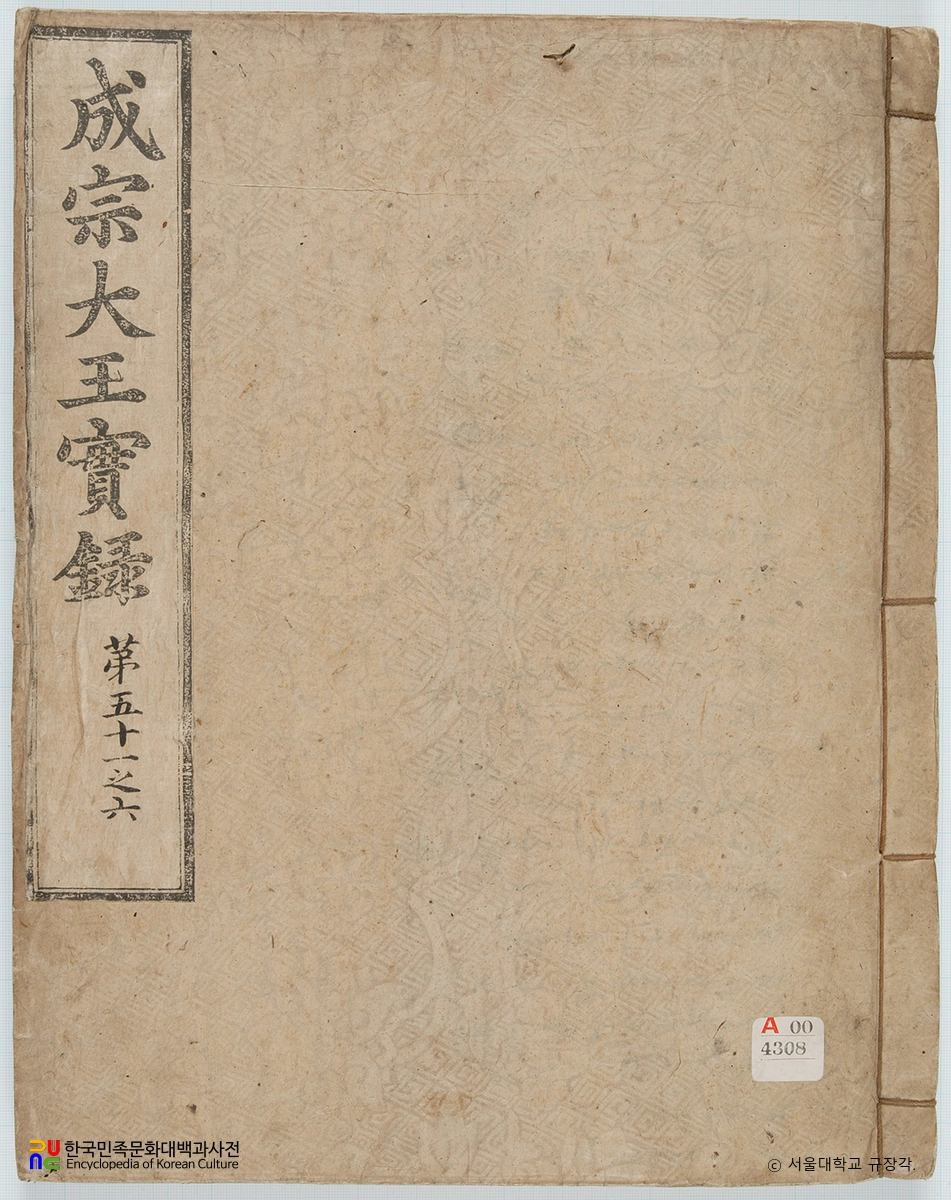 成宗大王實録
苐五十一之六
A 00
4308
한국민족문화대백과사전
Encyclopedia of Korean Culture
© 서울대학교 규장각.